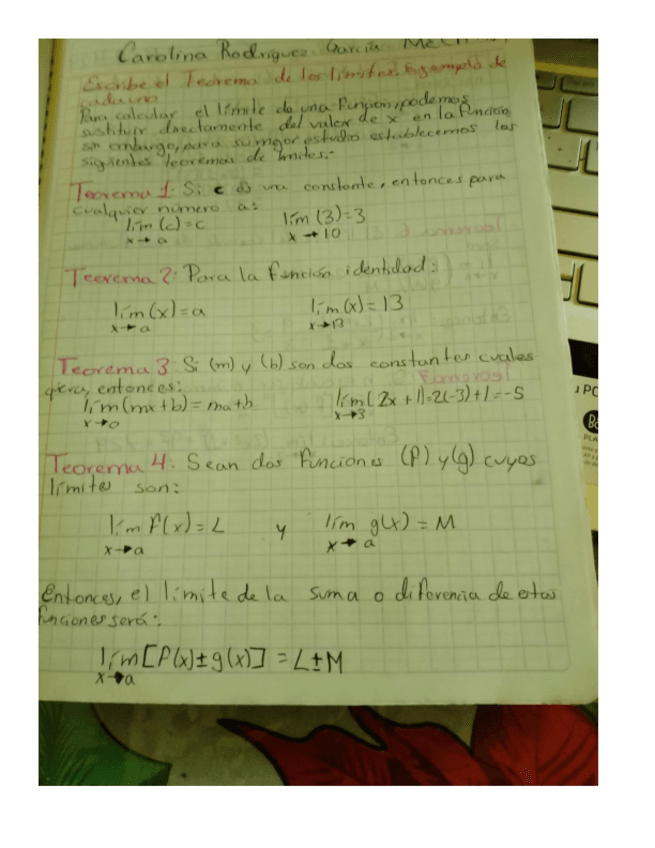 Carolina Rodríguez García
Escribe el Teorema de los límites. Ejemplo de
cada uno
Para calcular el límite de una función, podemos
sustituir directamente del valor de x en la función
sin embargo, para su mejor estudio establecemos los
siguientes teoremas de limites.
Teorema 1. Si c es una constante, entonces para
cualquier número a:
lím (c) = c lím (3) = 3
x→a x→10
Teorema 2: Para la función identidad:
lím (x) = a lím (x) = 13
x→a x→13
Teorema 3 Si (m) y (b) son dos constantes cuales
quiera, entonces:
lím (mx + b) = ma + b lím ( 2x + 1) = 2(-3) + 1 = -5
x→0 x→3
Teorema 4. Sean dos funciones (f) y (g) cuyos
límites son:
lím f(x) = L y lím g(x) = M
x→a x→a
Entonces, el límite de la suma o diferencia de estas
funciones será:
lím [f(x) ± g(x)] = L ± M
x→a